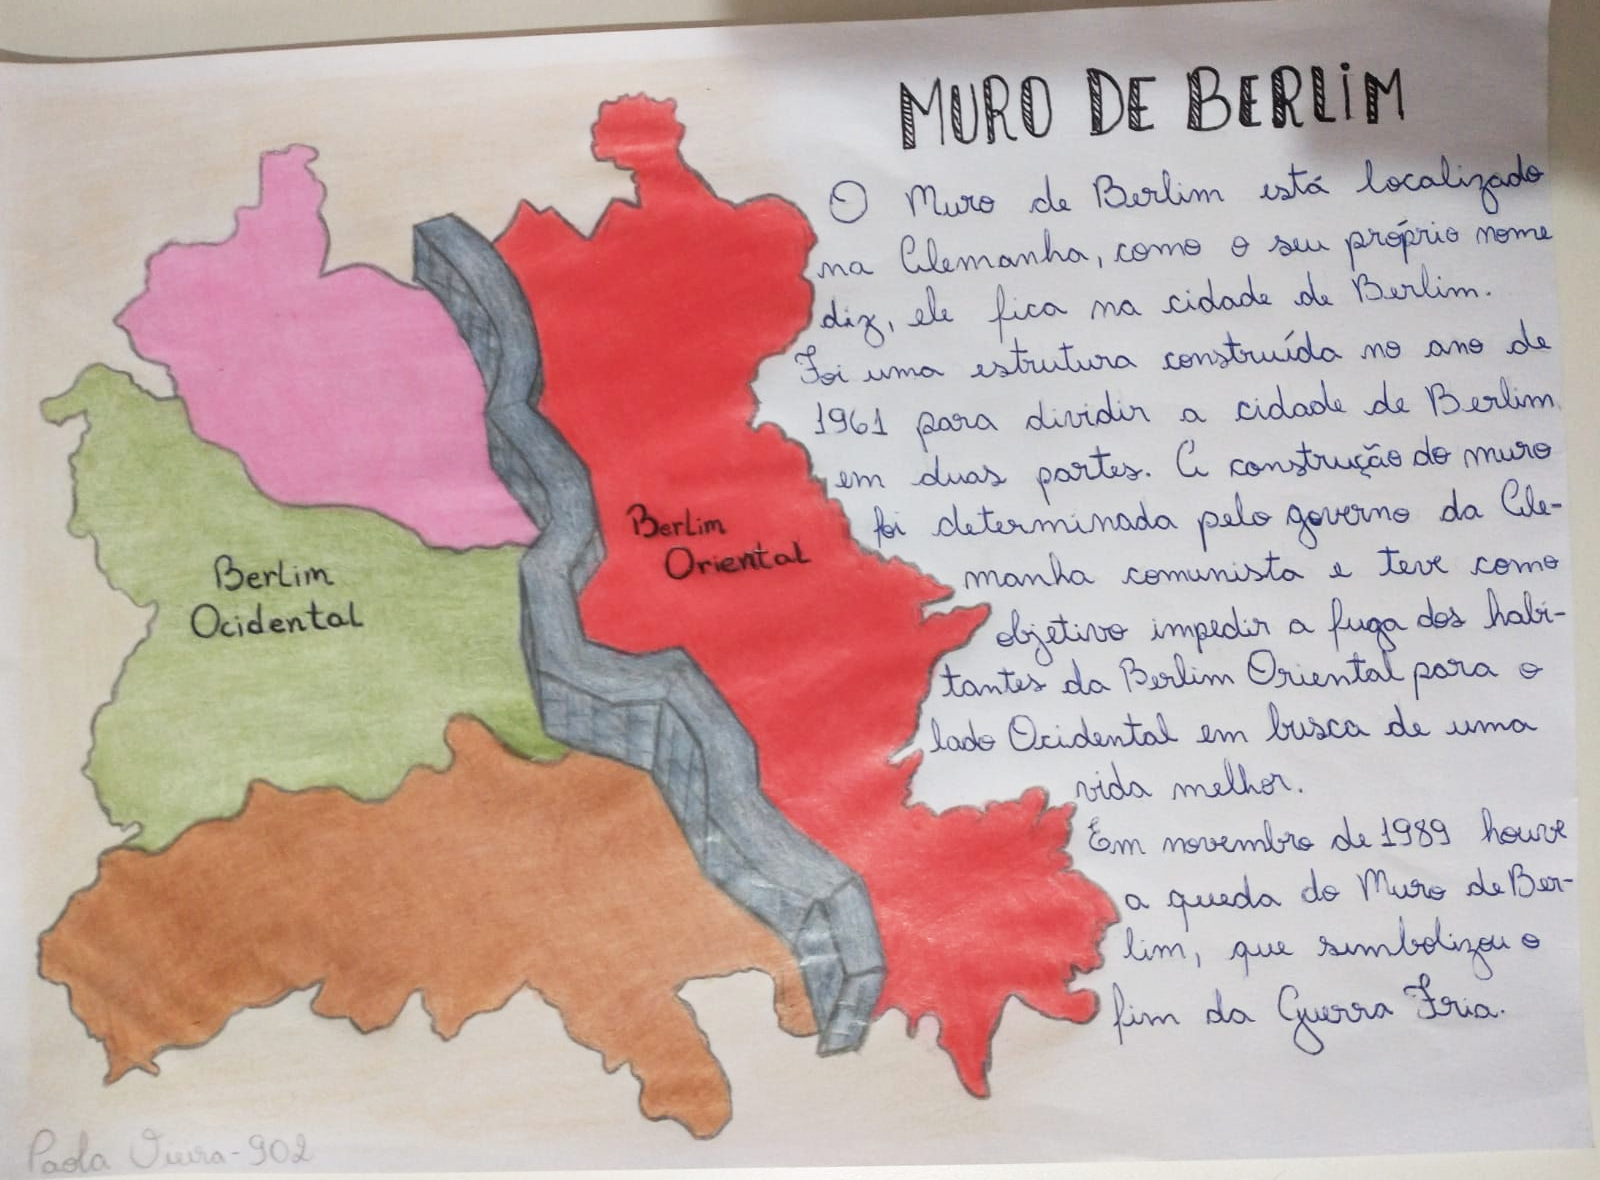 MURO DE BERLIM
O Muro de Berlim está localizado
na Alemanha, como o seu próprio nome
diz, ele fica na cidade de Berlim.
Foi uma estrutura construída no ano de
1961 para dividir a cidade de Berlim
em duas partes. A construção do muro
foi determinada pelo governo da Ale-
manha comunista e teve como
objetivo impedir a fuga dos habi-
tantes da Berlim Oriental para o
lado Ocidental em busca de uma
vida melhor.
Em novembro de 1989 houve
a queda do Muro de Ber-
lim, que simbolizou o
fim da Guerra Fria.
Berlim
Oriental
Berlim
Ocidental
Paola Vieira-902